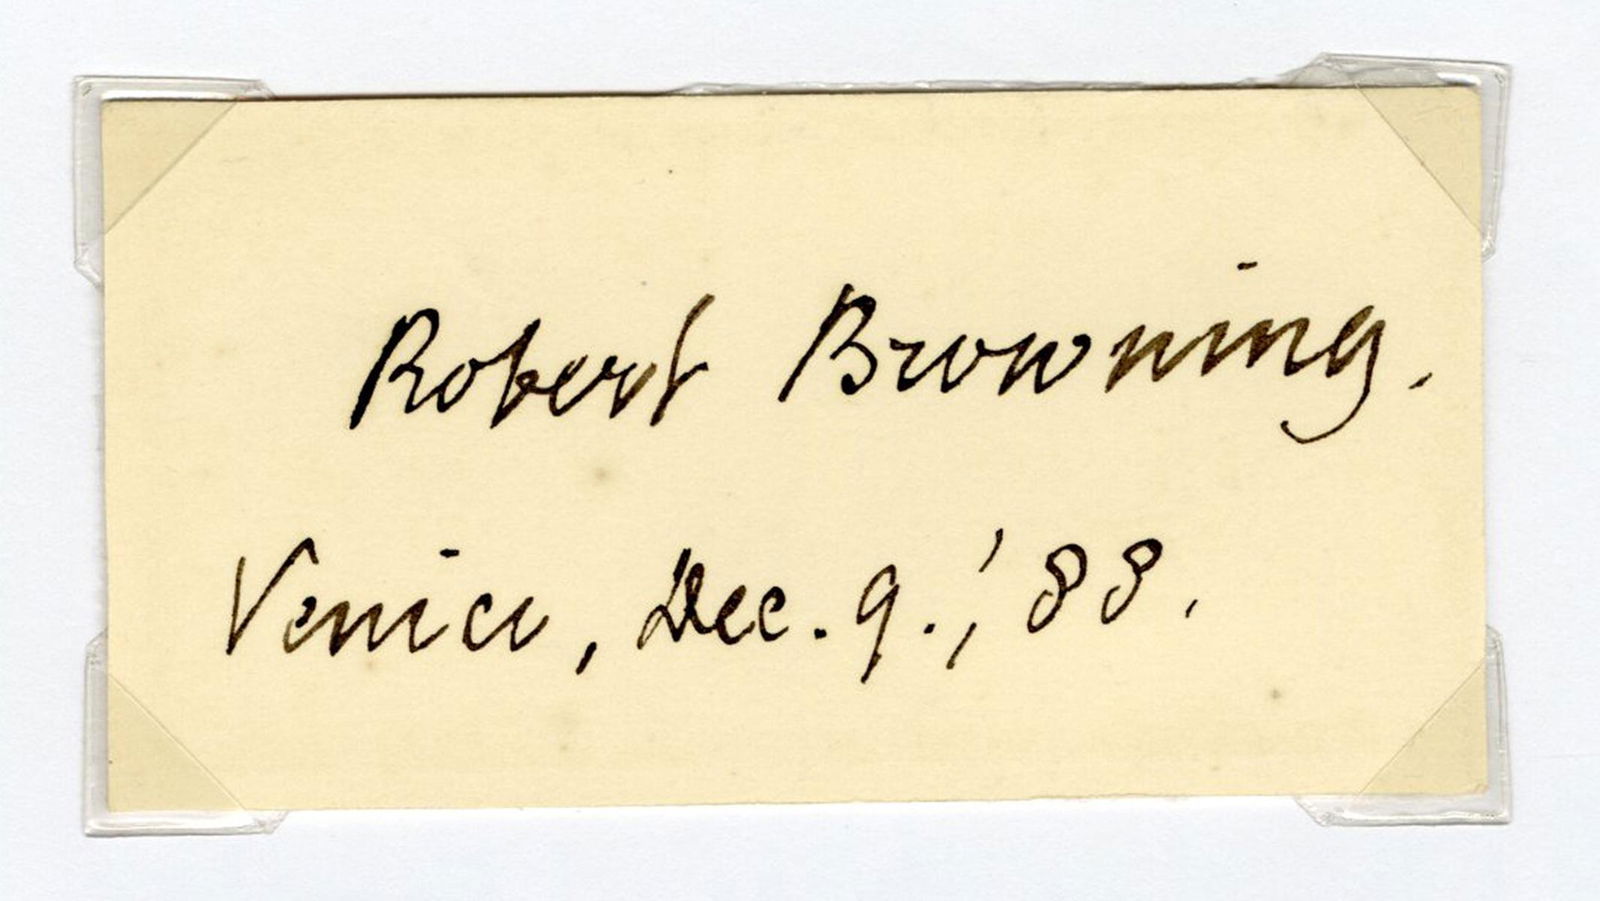 Robert Browning.
Venice, Dec. 9.,' 88.